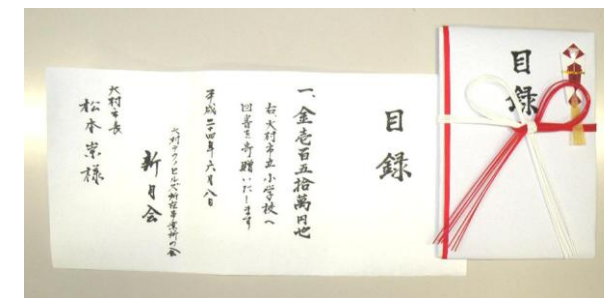 目録
目録
一、金壱百五拾萬円也
右、大村市立小学校へ
図書を寄贈いたします
平成二十四年六月八日
新月会
大村市長
松本崇様